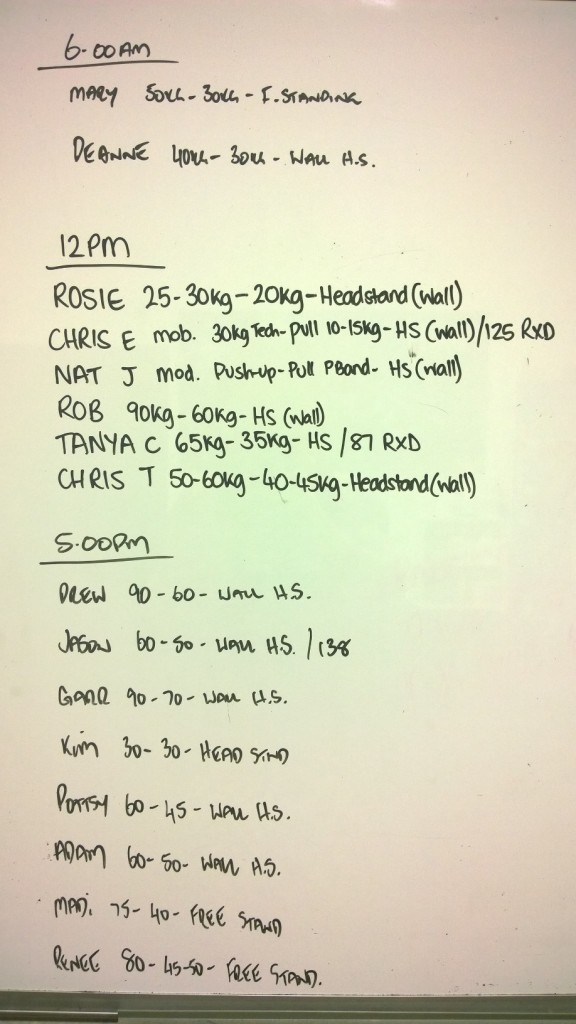 6.00AM
MARY 50KG - 30KG - F. STANDING
DEANNE 40KG - 30KG - WALL H.S.
12PM
ROSIE 25-30kg-20kg-Headstand (wall)
CHRIS E mob. 30kg Tech-pull 10-15kg-HS (wall)/125 RXD
NAT J mod. Push-up-Pull PBand-HS (wall)
ROB 90kg-60kg-HS (wall)
TANYA C 65kg-35kg-HS /87 RXD
CHRIS T 50-60kg-40-45kg-Headstand (wall)
5.00PM
DREW 90-60-WALL H.S.
JASON 60-50-WALL H.S. /138
GARR 90-70-WALL H.S.
KIM 30-30-HEAD STND
POTTSY 60-45-WALL H.S.
ADAM 60-50-WALL H.S.
MADI 75-40-FREE STAND
RENEE 80-45-50-FREE STAND.